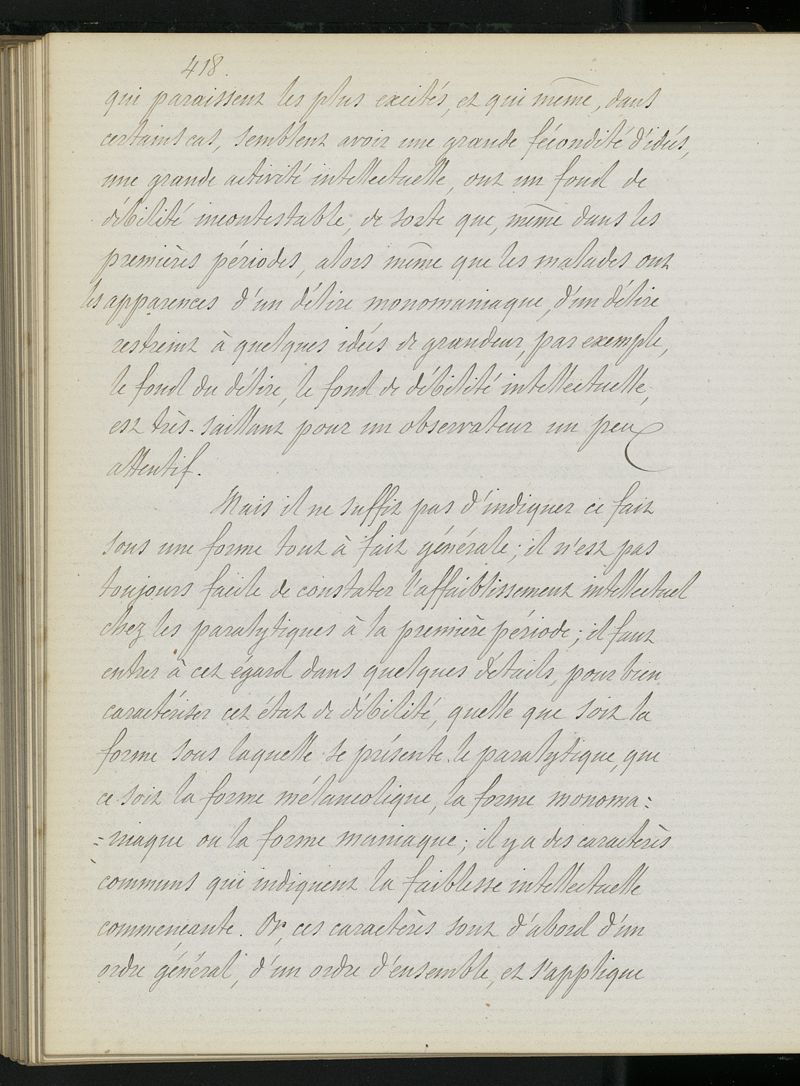 418.
qui paraissent les plus excités, et qui même, dans
certains cas, semblent avoir une grande fécondité d'idées,
une grande activité intellectuelle, ont un fond de
débilité incontestable, de sorte que, même dans les
premières périodes, alors même que les malades ont
les apparences d'un délire monomaniaque, d'un délire
restreint à quelques idées de grandeur, par exemple,
le fond du délire, le fond de débilité intellectuelle,
est très-saillant pour un observateur un peu
attentif.
Mais il ne suffit pas d'indiquer ce fait
sous une forme tout à fait générale; il n'est pas
toujours facile de constater l'affaiblissement intellectuel
chez les paralytiques à la première période; il faut
entrer à cet egard dans quelques détails, pour bien
caractériser cet état de débilité, quelle que soit la
forme sous laquelle se présente le paralytique, que
ce soit la forme mélancolique, la forme monoma=
=niaque ou la forme maniaque; il y a des caractères
communs qui indiquent la faiblesse intellectuelle
commençante. Or, ces caractères sont d'abord d'un
ordre général, d'un ordre d'ensemble, et s'applique